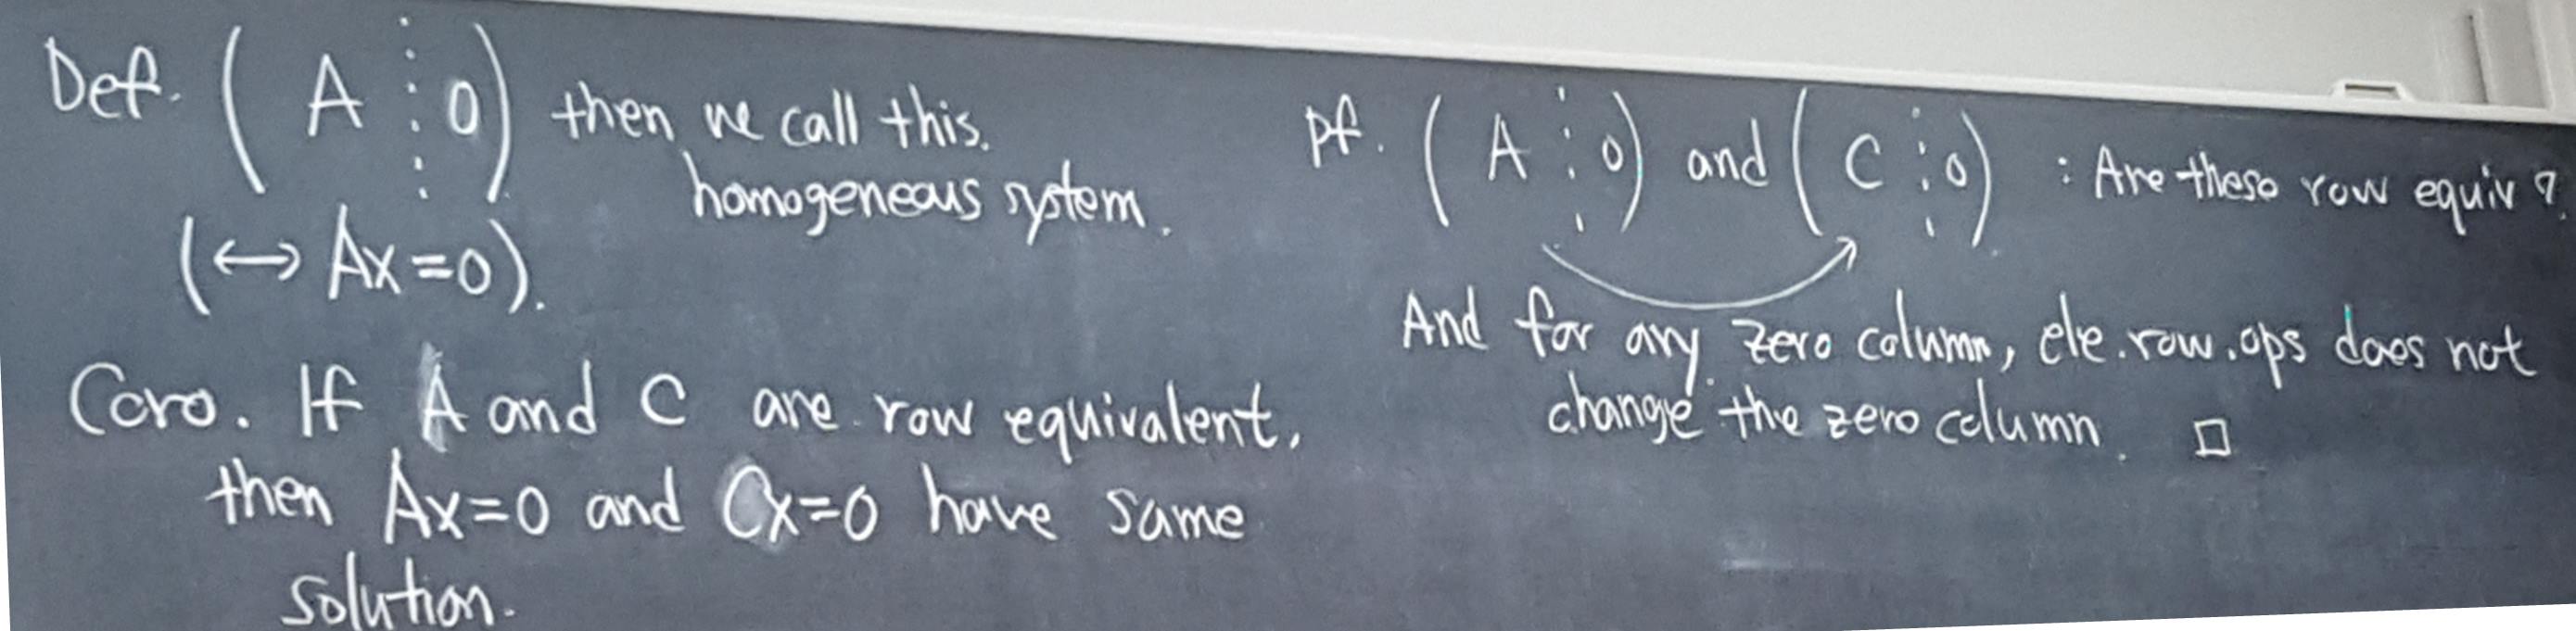 Def. ( A ⋮ 0 ) then we call this.
homogeneous system.
(↔ Ax=0).
Coro. If A and C are row equivalent,
then Ax=0 and Cx=0 have same
solution.
pf. ( A ⋮ 0 ) and ( C ⋮ 0 ) : Are these row equiv ?
And for any zero column, ele.row.ops does not
change the zero column. □